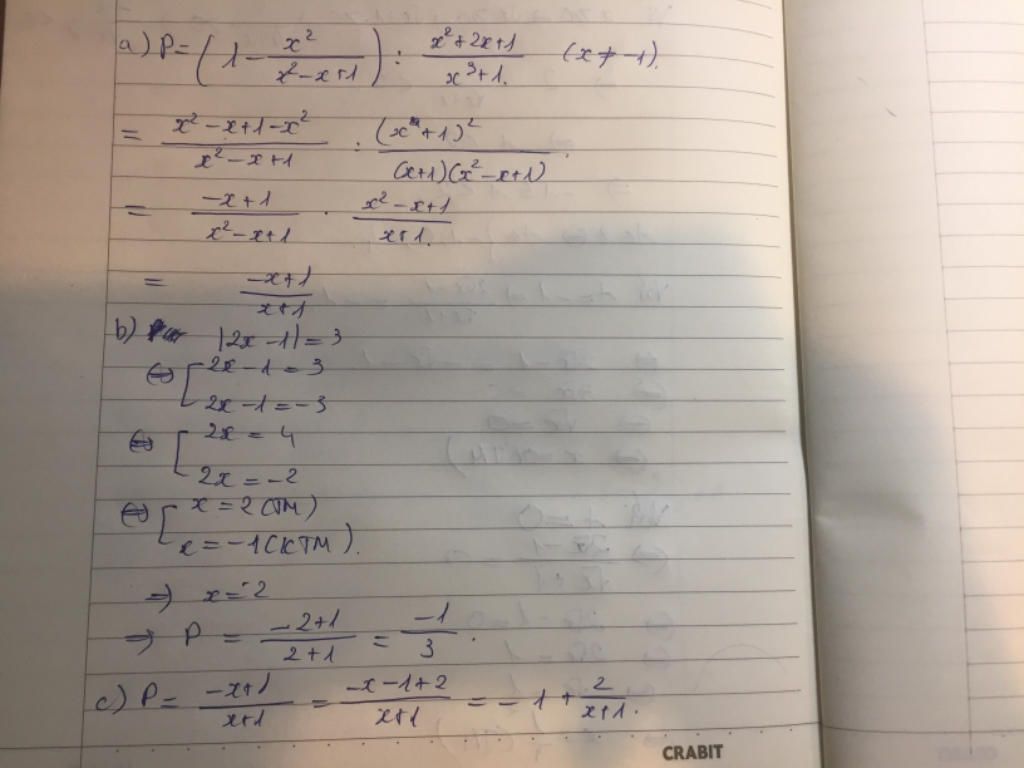 a) P = (1 - x²/(x² - x + 1)) : (x² + 2x + 1)/(x³ + 1). (x ≠ -1).
= (x² - x + 1 - x²)/(x² - x + 1) : (x + 1)²/((x+1)(x² - x + 1)).
= (-x + 1)/(x² - x + 1) . (x² - x + 1)/(x + 1).
= (-x + 1)/(x + 1)
b) |2x - 1| = 3
⇔ [ 2x - 1 = 3
2x - 1 = -3
⇔ [ 2x = 4
2x = -2
⇔ [ x = 2 (TM)
x = -1 (KTM).
⇒ x = 2
⇒ P = (-2 + 1)/(2 + 1) = -1/3.
c) P = (-x + 1)/(x + 1) = (-x - 1 + 2)/(x + 1) = -1 + 2/(x + 1).
CRABIT